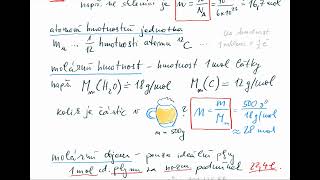 např. ve sklenici je n = N/N_A = 10²⁵/6·10²³ ≐ 16,7 mol
atomová hmotnostní jednotka
m_u … 1/12 hmotnosti atomu ¹²C
molární hmotnost - hmotnost 1 mol látky
např. M_m(H₂O) ≐ 18 g/mol M_m(C) = 12 g/mol
kolik je částic v ? n = m/M_m = 500 g/18 g/mol
m = 500g ≐ 28 mol
molární objem - pouze ideální plyny
1 mol id. plynu za norm. podmínek 22,4 l